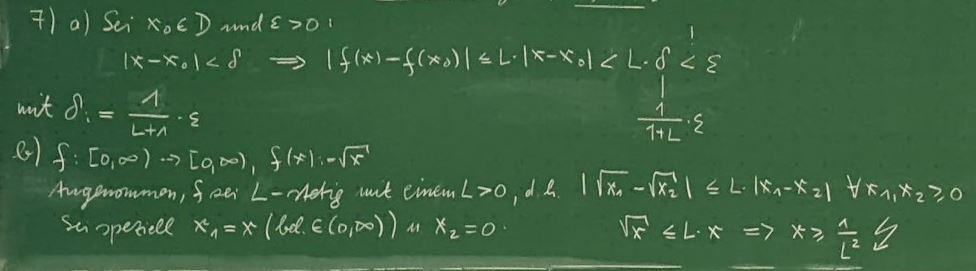 7) a) Sei x₀ ∈ D und ε > 0 :
!
|x-x₀| < δ ⟹ |f(x)-f(x₀)| ≤ L·|x-x₀| < L·δ < ε
mit δ := 1/(L+1) · ε
1/(1+L) · ε
b) f: [0,∞) → [0,∞), f(x) := √x
Angenommen, f sei L-stetig mit einem L>0, d.h. |√x₁ - √x₂| ≤ L·|x₁-x₂| ∀x₁,x₂ ≥ 0
Sei speziell x₁ = x (bel. ∈ (0,∞)) u x₂ = 0. √x ≤ L·x ⇒ x ≥ 1/L² ↯